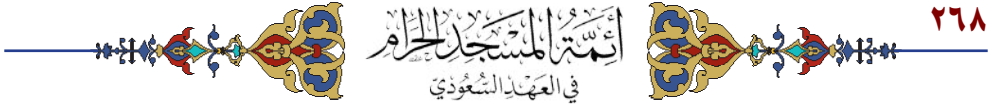 ٢٦٨
أَئِمَّةُ المَسْجِدِ الحَرَامِ
في العَهْدِ السُّعُوْدِيّ